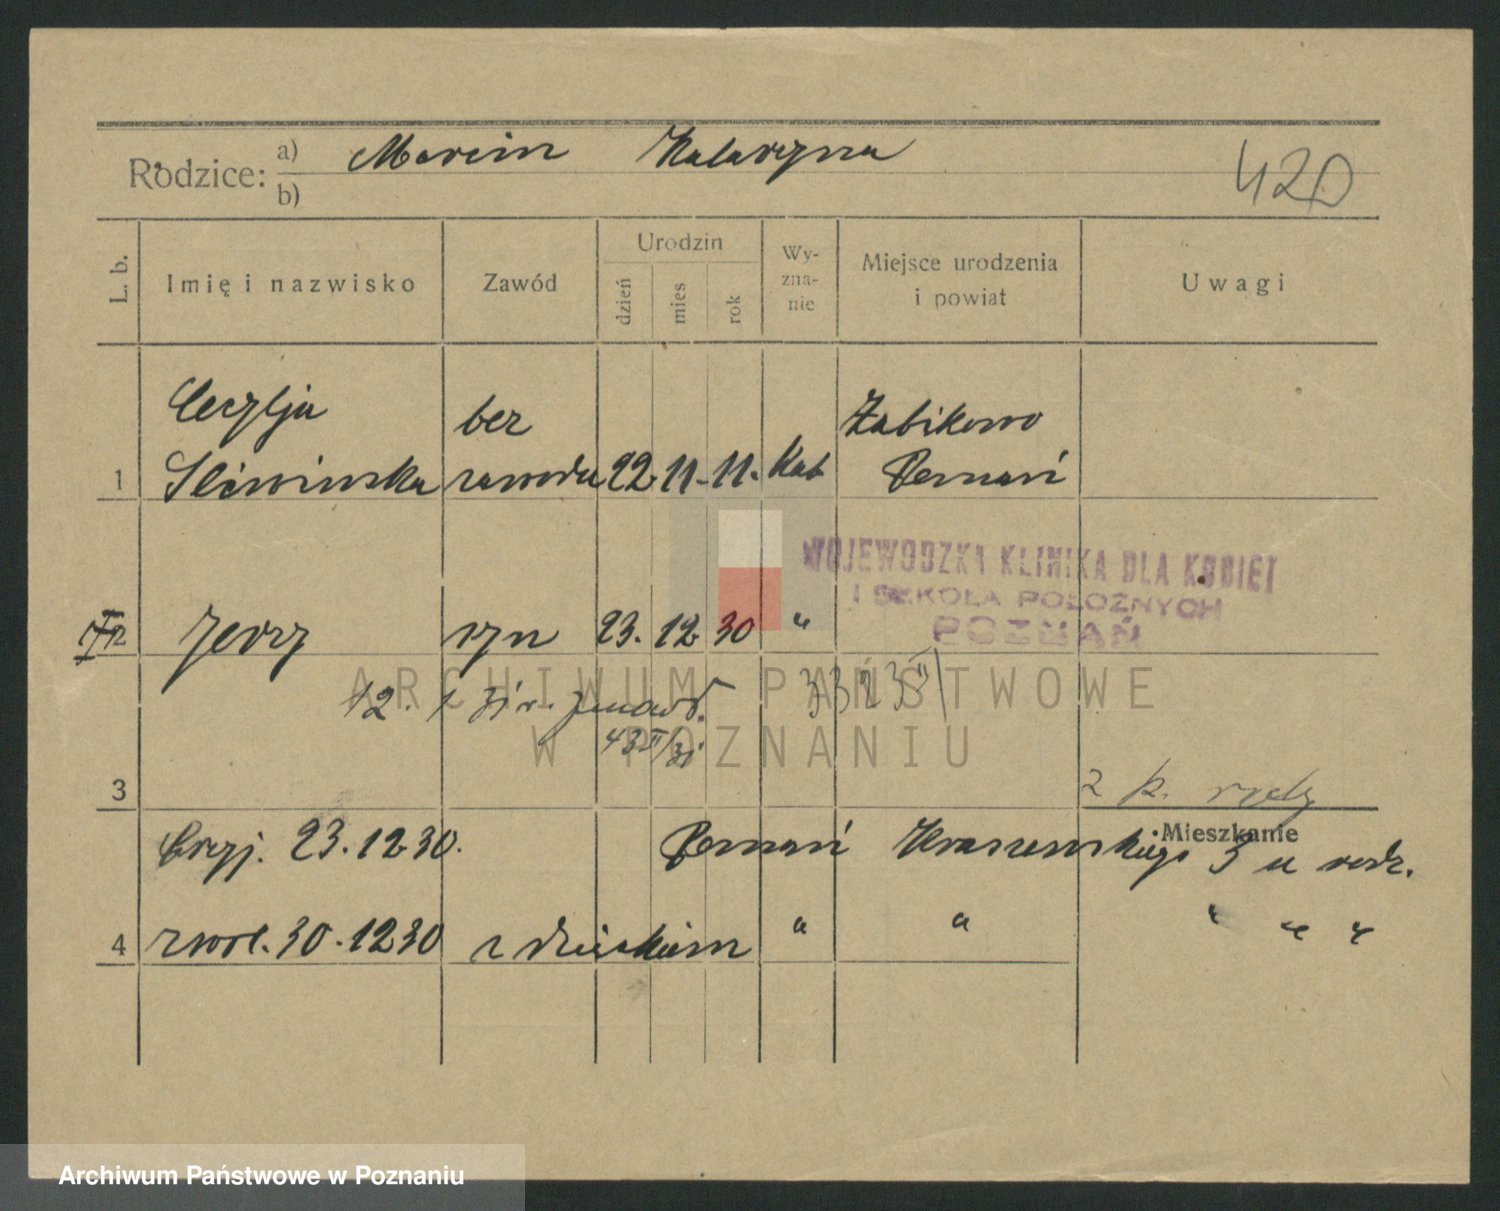 Rodzice:
a) Marcin Katarzyna
b)
420
L. b.
Imię i nazwisko
Zawód
Urodzin
dzień
mies
rok
Wy-
zna-
nie
Miejsce urodzenia
i powiat
Uwagi
Cecylja bez Żabikowo
1 Śliwińska zawodu 22. 11. 11. Kat Poznań
WOJEWÓDZKA KLINIKA DLA KOBIET
I SZKOŁA POŁOŻNYCH
POZNAŃ
2 Jerzy syn 23. 12 30 "
ARCHIWUM PAŃSTWOWE
W POZNANIU
12. 1
43 II/31
3
2 k.
Mieszkanie
Przyj. 23. 12 30. Poznań Kraszewskiego 3 u rodz.
4 zwol. 30. 12 30 z dzieckiem " " " " "
Archiwum Państwowe w Poznaniu